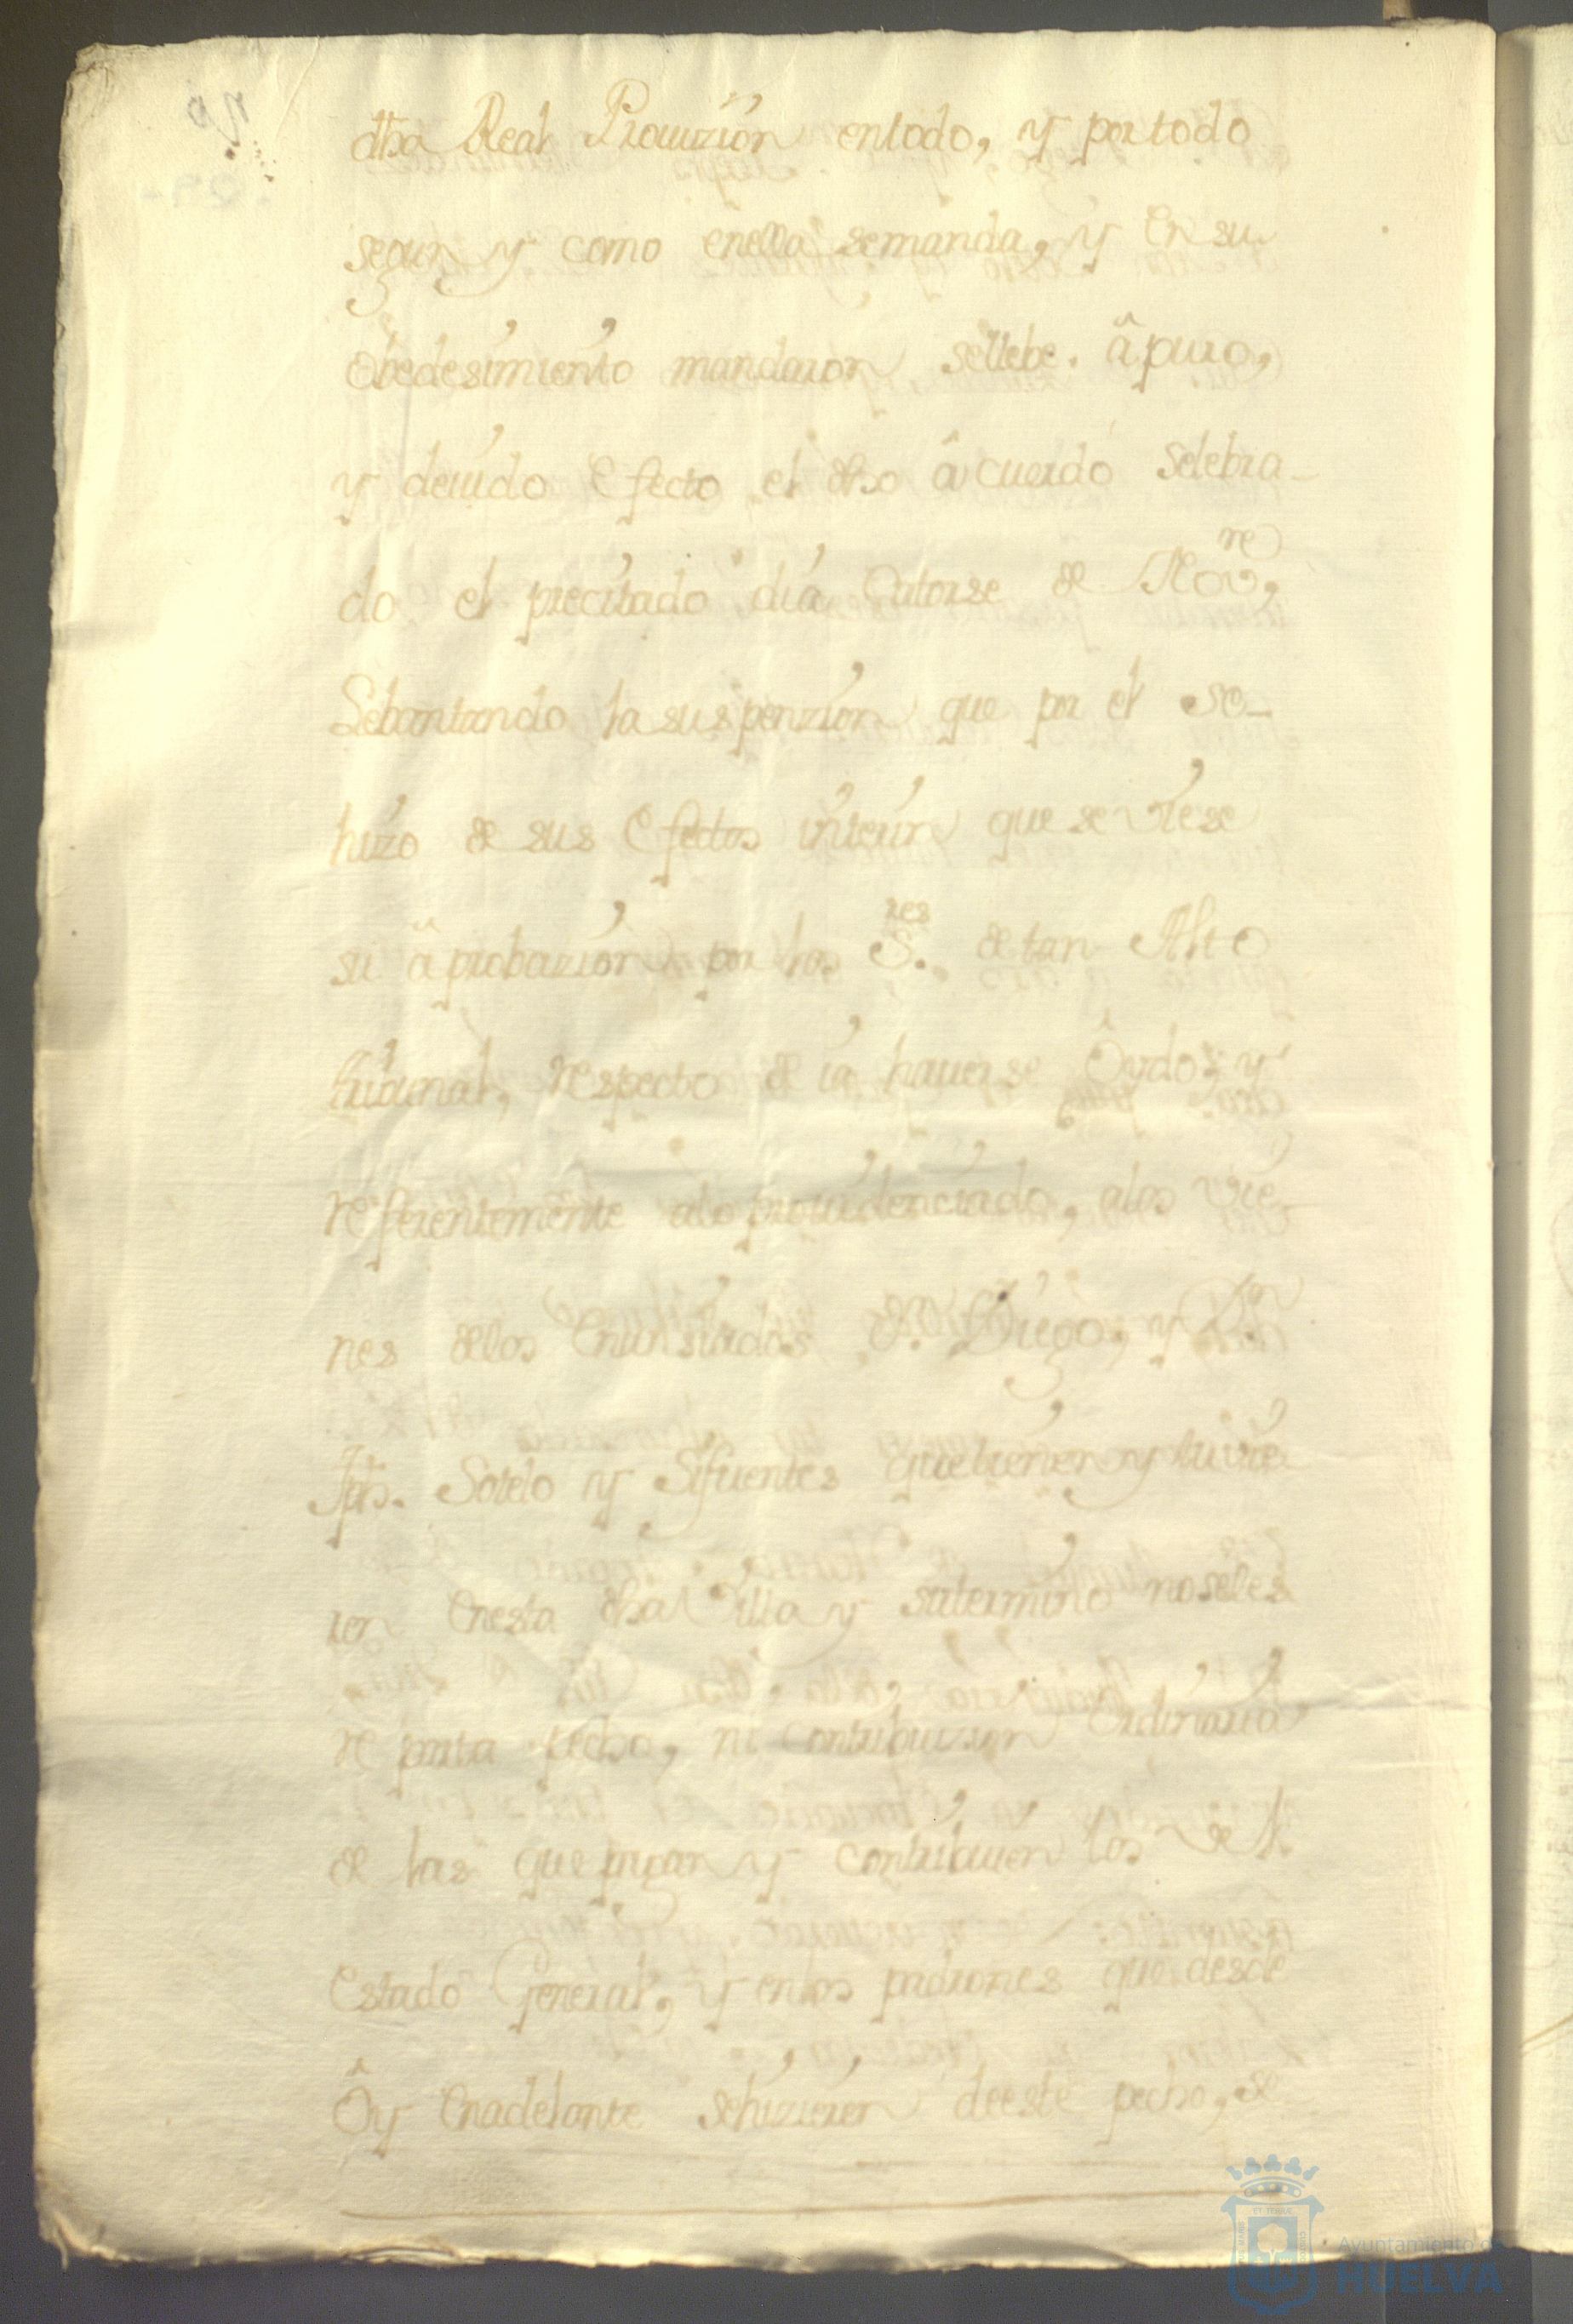 dha Real Prouizion entodo, y por todo
segun y como enella semanda, y En su
Obedesimiento mandaron sellebe. â puro,
y deuido Efecto el dho âcuerdo Selebra-
do el precitado dia Catorse de Nov.re,
Lebantando la suspenzion que por el se-
hizo de sus Efectos interin que se viese
su âprobazion por los S.res de tan Alto
tribunal, respecto de ia hauerse Ôydo; y
referentemente alo prouidenciado, alos vie-
nes delos Enunsiados D.n Diego, y D.n
Jph. Sotelo y Sifuentes que tienen y tuvie
ren Enesta dha Villa y sutermino noseles
reparta pecho, ni Contribuzion Ordinaria
de las que pagan y contribuien los del
Estado General, y enlos padrones que desde
Ôy Enadelante sehizieren deeste pecho, se
Ayuntamiento de
HUELVA